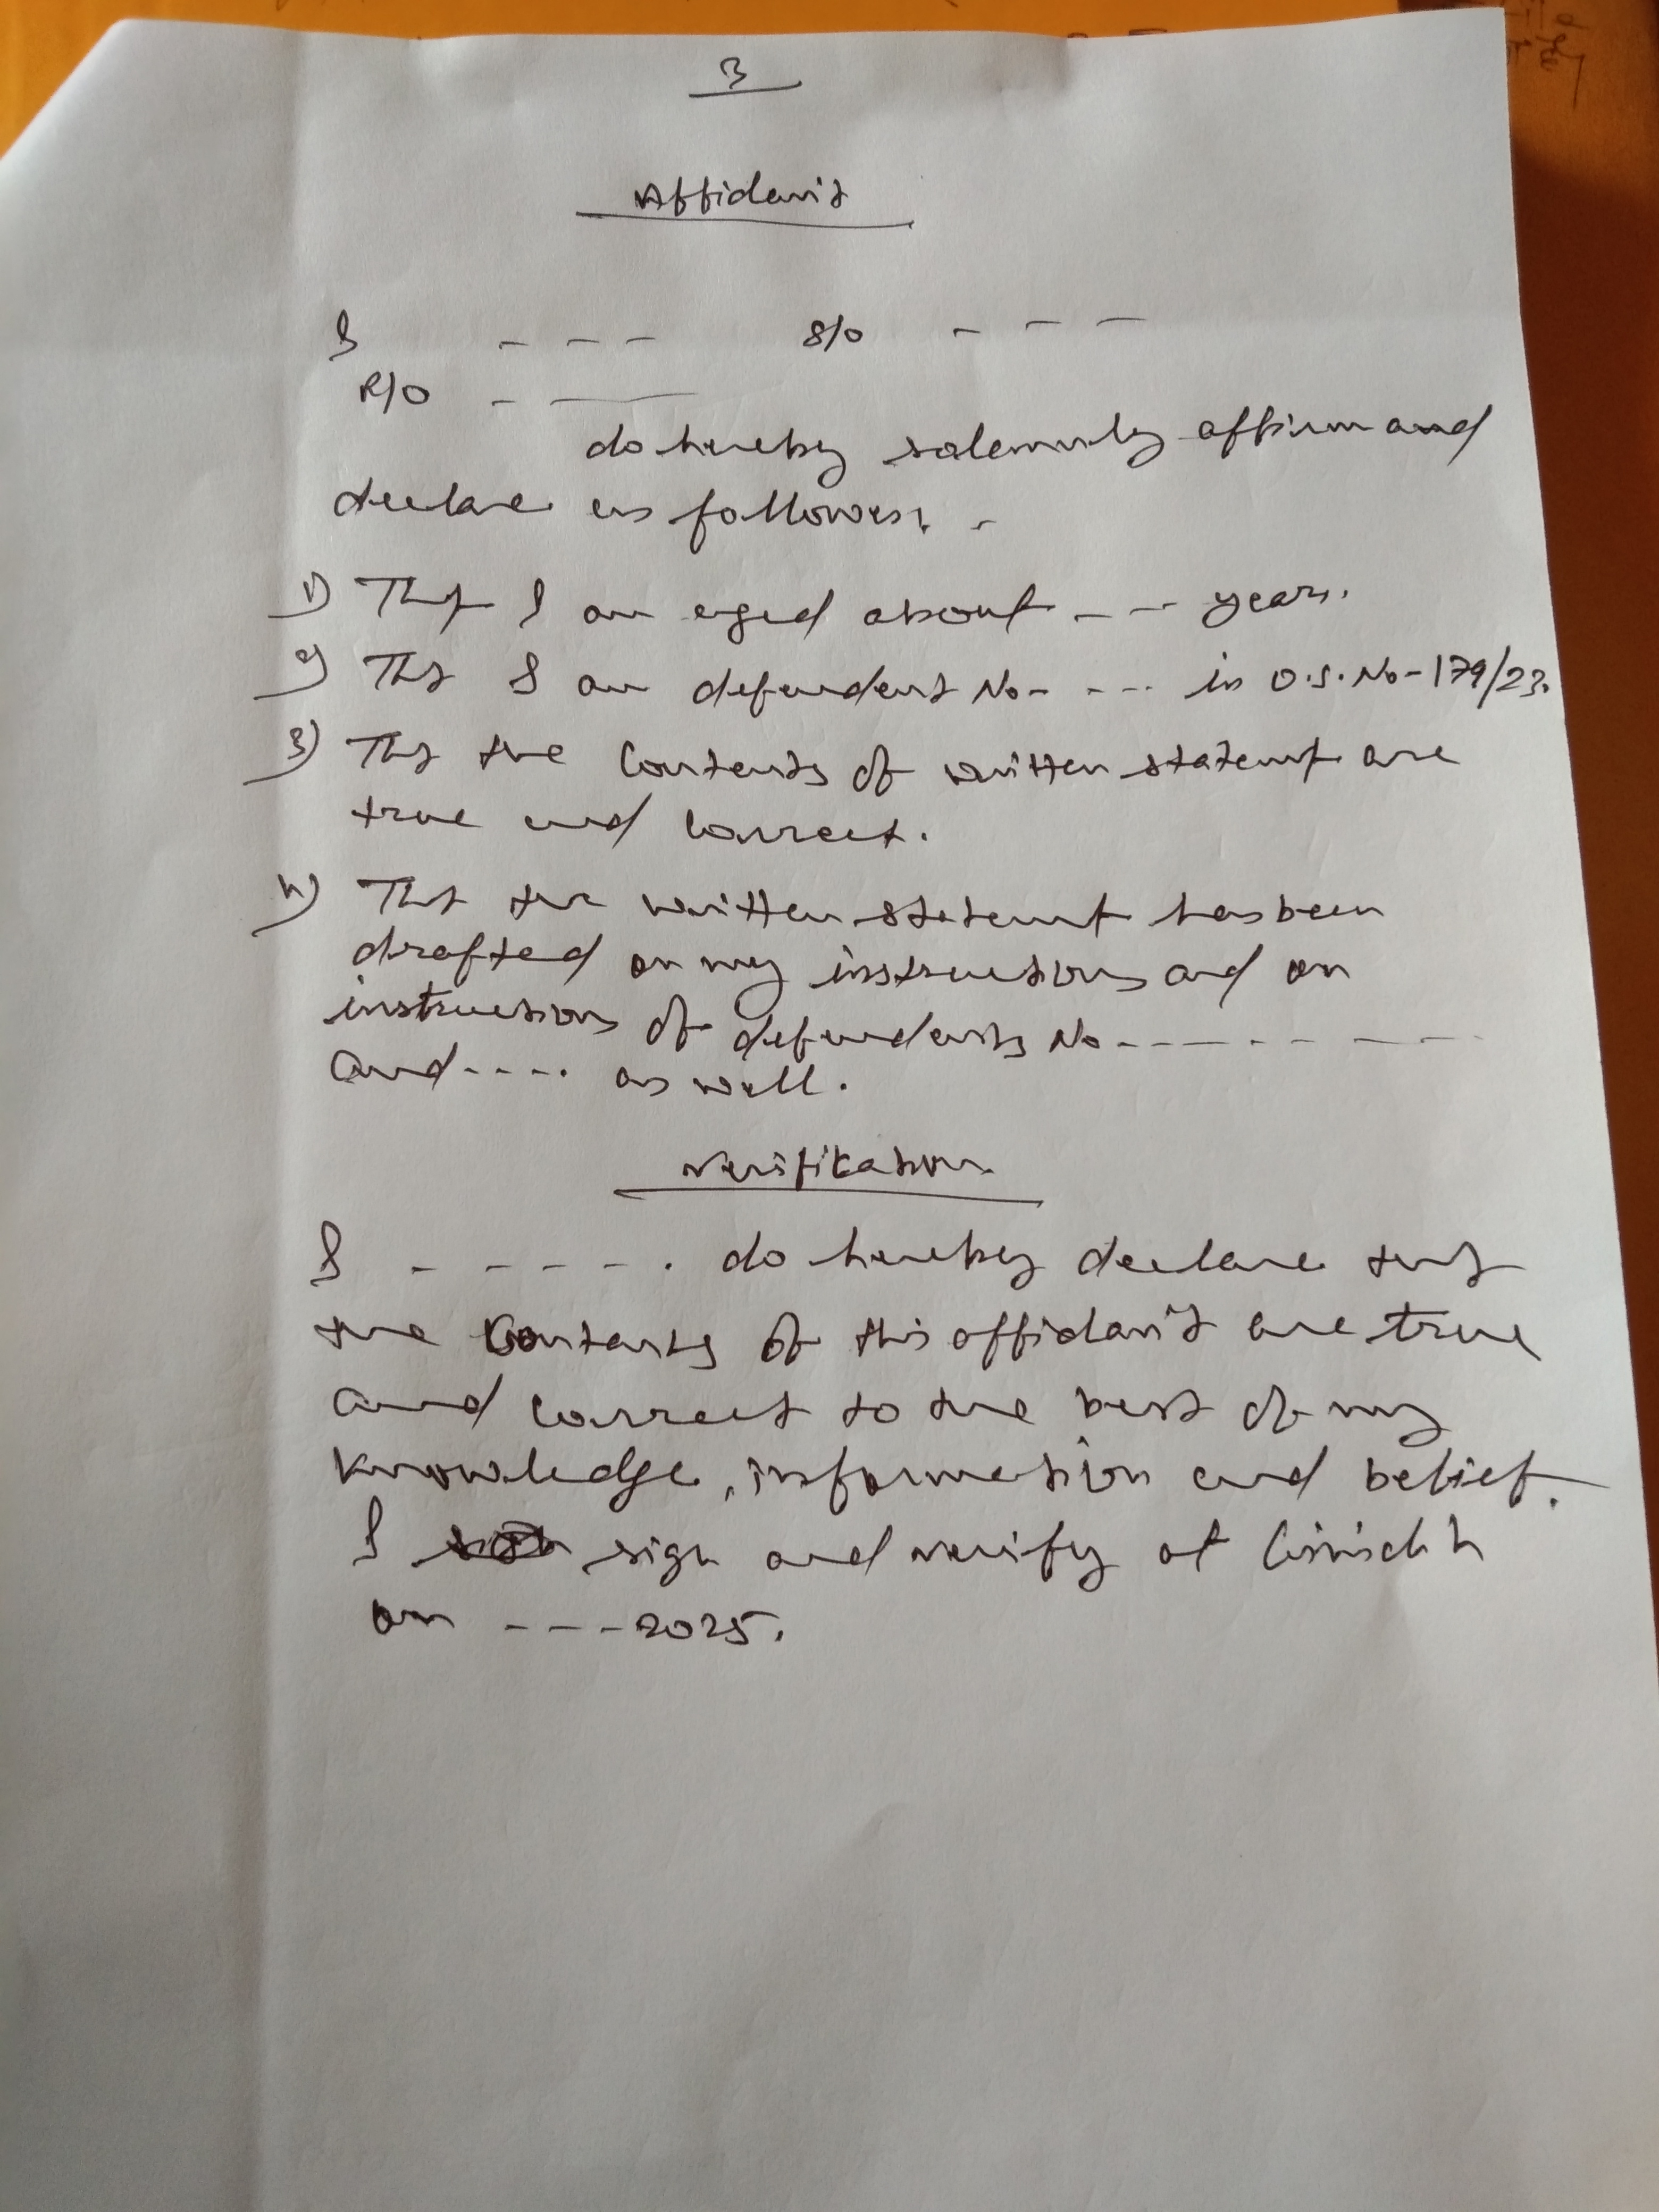 3
Affidavit
I - - - S/o - - -
R/o - —
do hereby solemnly affirm and
declare as follows: -
1) That I am aged about - - - years.
2) That I am defendant No- - - - in O.S. No-179/23.
3) That the contents of written statement are
true and correct.
4) That the written statement has been
drafted on my instructions and on
instructions of defendants No - - - - - - - -
and - - - - as well.
Verification
I - - - - - . do hereby declare that
the contents of this affidavit are true
and correct to the best of my
knowledge, information and belief.
I sign and verify at
on - - - 2025.